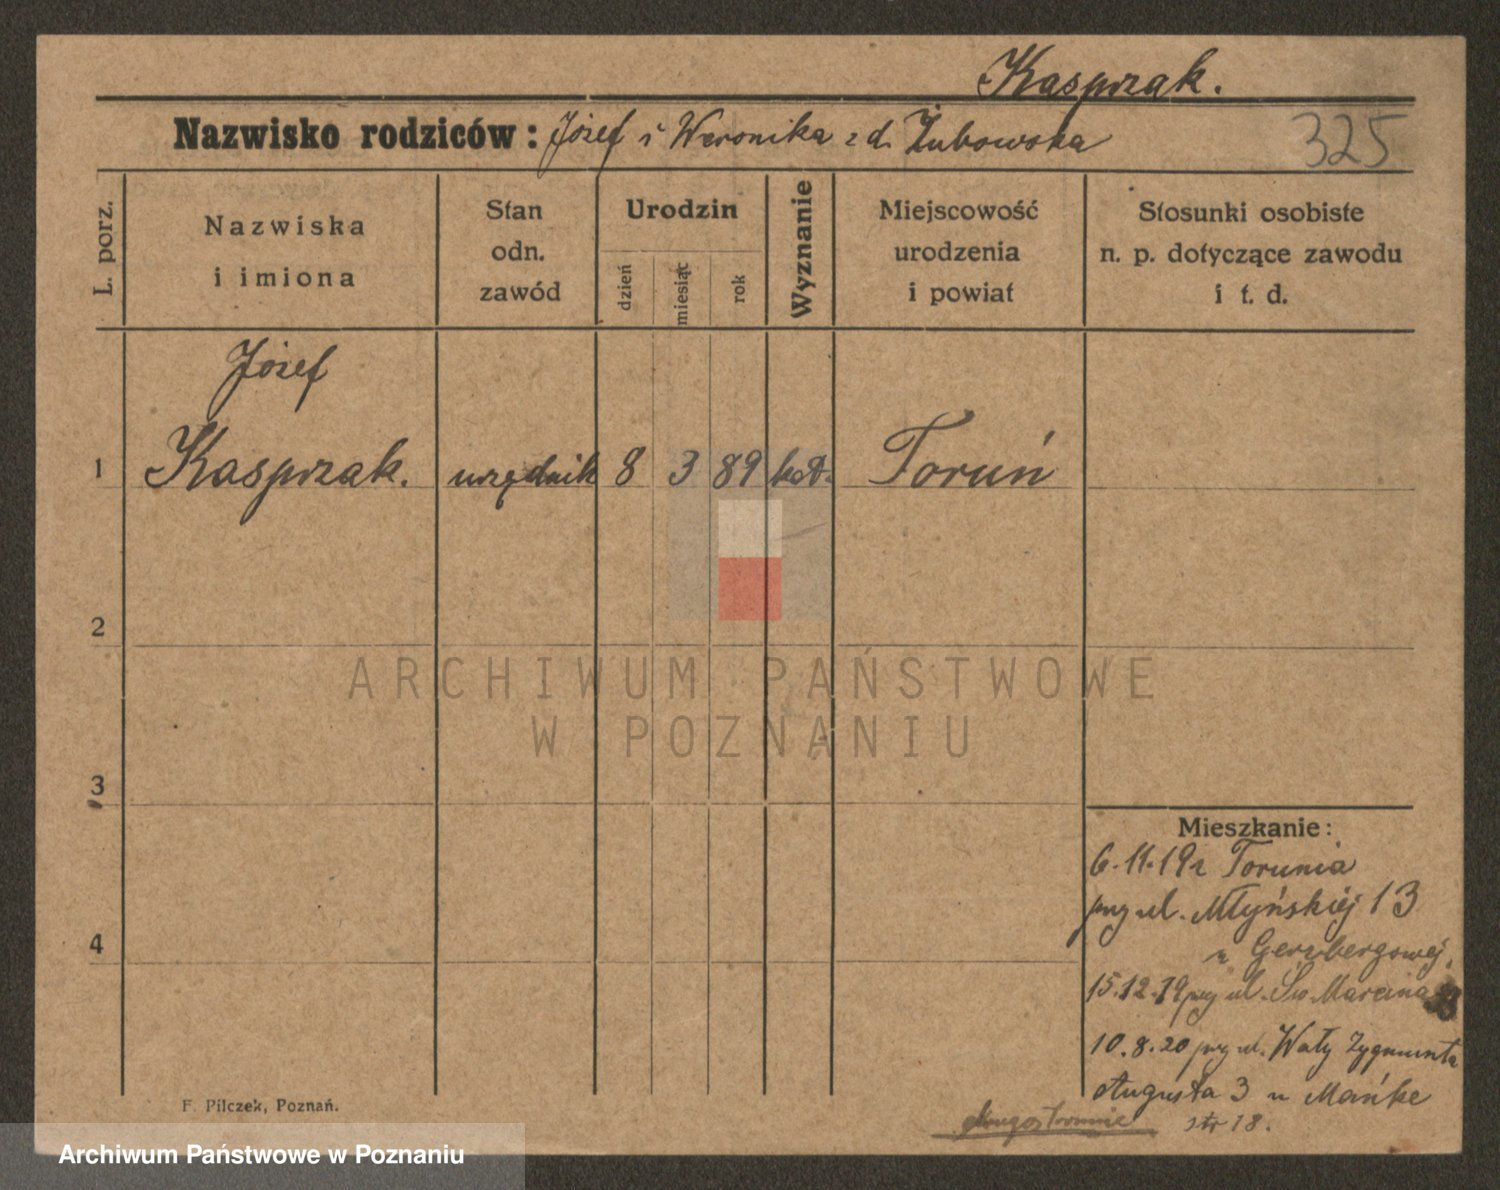 Kasprzak.
Nazwisko rodziców: Józef i Weronika z d. Żubowska
325
L. porz.
Nazwiska
i imiona
Stan
odn.
zawód
Urodzin
dzień
miesiąc
rok
Wyznanie
Miejscowość
urodzenia
i powiat
Stosunki osobiste
n. p. dotyczące zawodu
i t. d.
Józef
1 Kasprzak. urzędnik 8 3 89 kat. Toruń
2
ARCHIWUM PAŃSTWOWE
W POZNANIU
3
Mieszkanie:
6.11.19 z Torunia
przy ul. Młyńskiej 13
u Gerzbergowej,
15.12.19 przy ul. Św. Marcina
4
10.8.20 przy ul. Wały Zygmunta
Augusta 3 u Mańke
str 18.
F. Pilczek, Poznań.
Archiwum Państwowe w Poznaniu